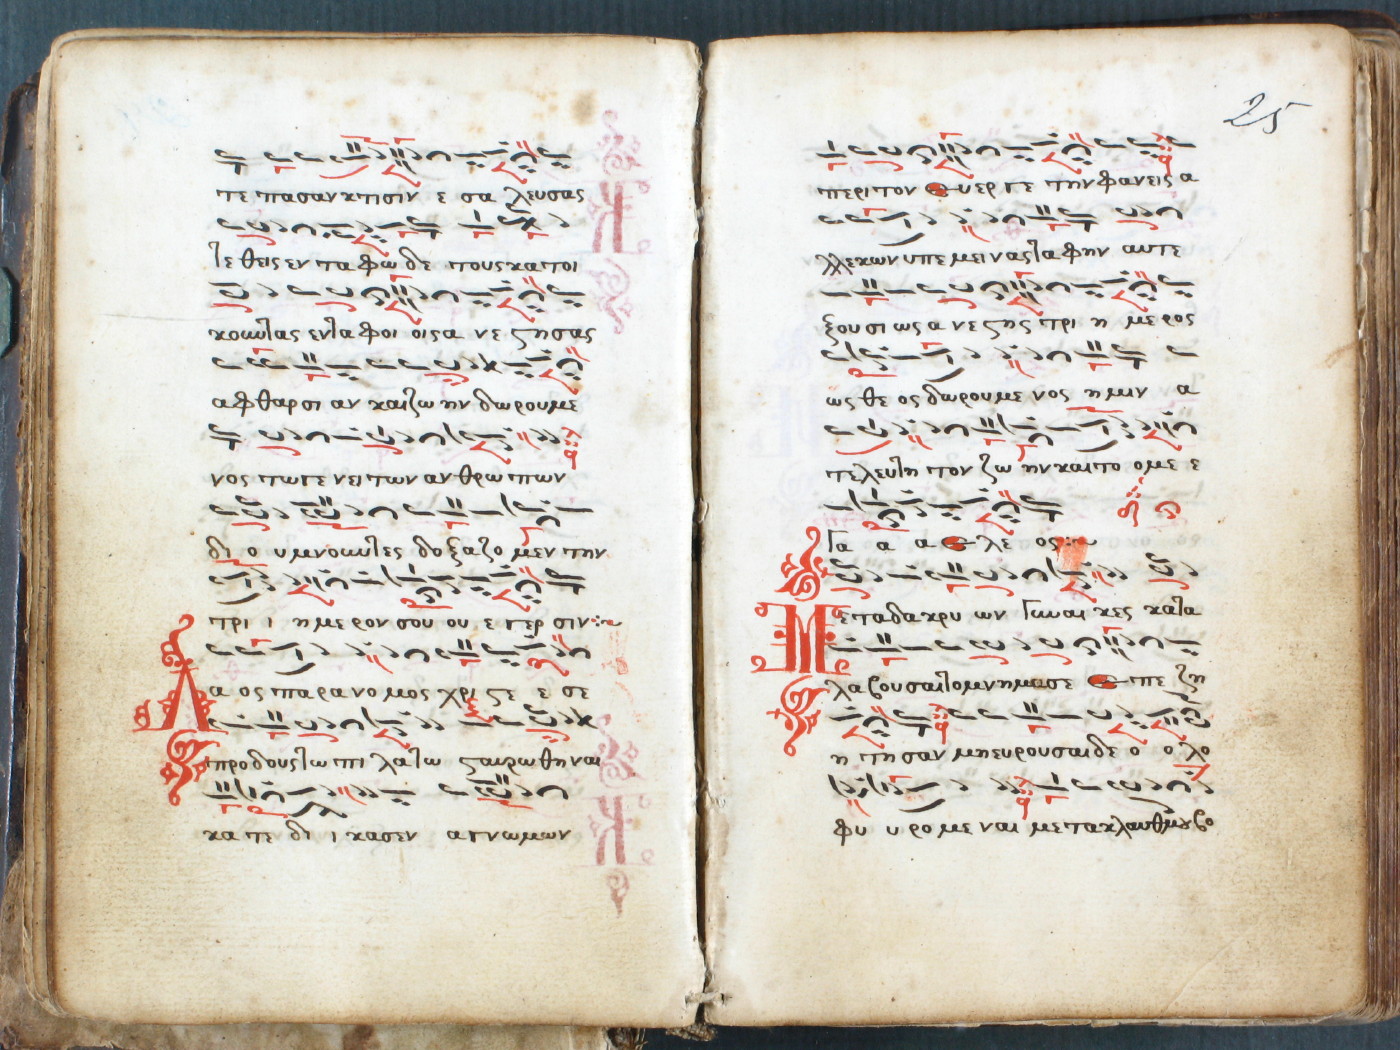 τε πασαν κτισιν ε σα λευσας
τε θεις εν ταφω δε τους κατοι
κουντας εν ταφοι οις α νε στησας
α φθαρσι αν και ζω ην δωρουμε
νος τω γε νει των αν θρω πων
δι ο υμνουντες δοξαζο μεν την
τρι ι ημερον σου ου ε γερσιν
Λα ος παρανο μος χρι στε ε σε
προδους τω πι λα τω σταυρωθηναι
κα τε δι ι κασεν α γνωμων
25
περι τον ευερ γε την φανεις α
λλεκων υπε μεινας ταφην αυτε
ξουσι ως α νε στης τρι η μερος
ως θε ος δωρουμε νος ημιν α
τελευτη τον ζω ην και το ομε ε
γα α α ελε ος
Μετα δακρυ ων γυναι κες κατα
λαβουσαι το μνημα σε επε ζη
η τησαν μη ευρουσαι δε ο ολο
φυ υρομεναι μετα κλαυθμου βο